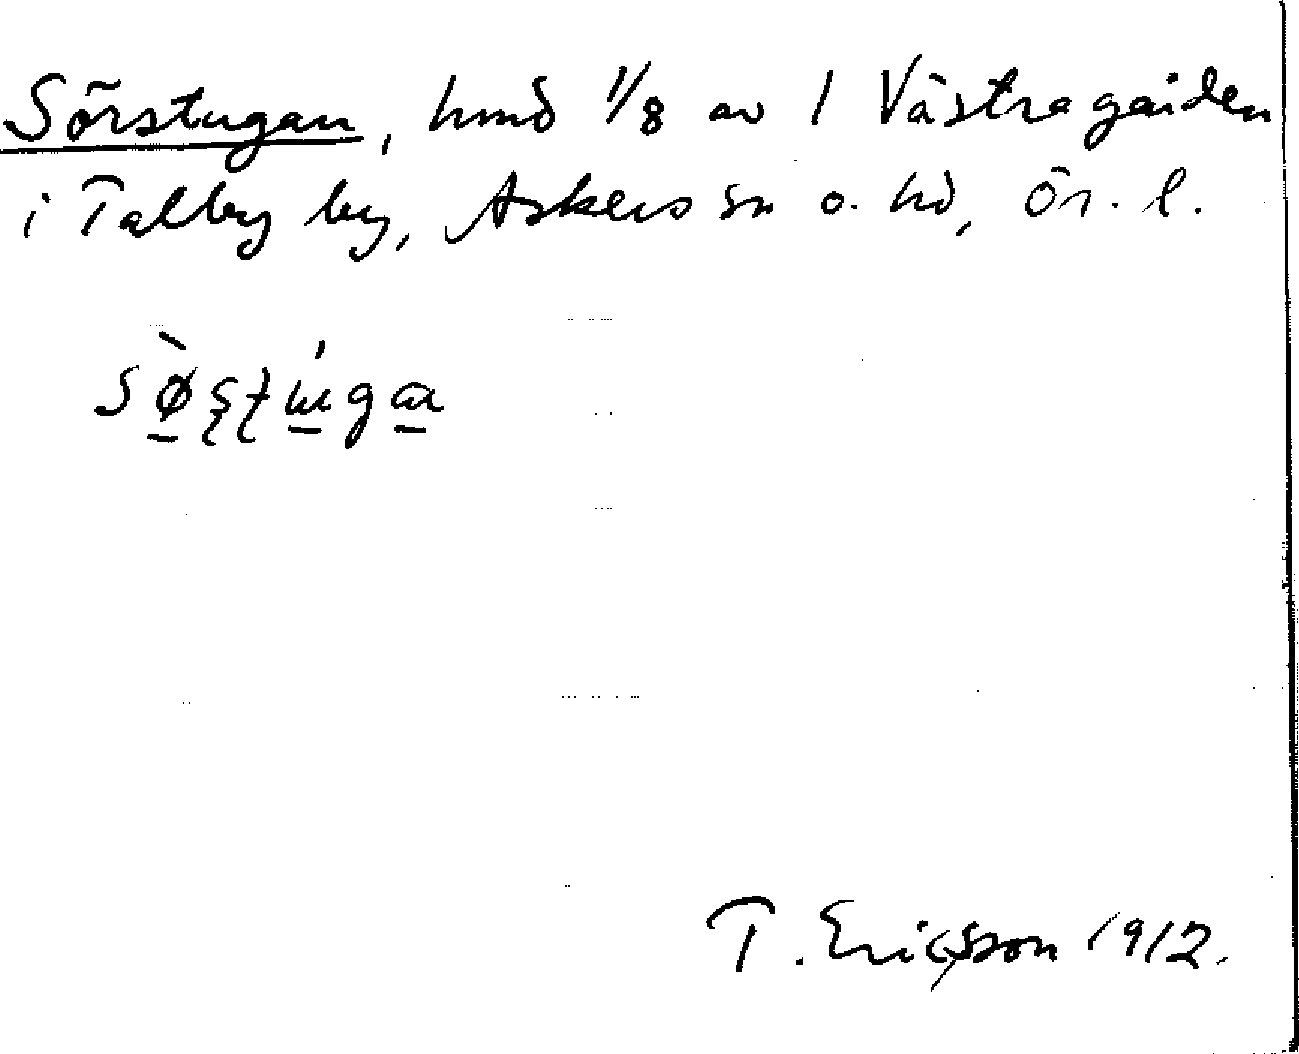 Sörstugan, hmd 1/8 av 1 Västragården
i Talby by, Askers sn o. hd, Ör. l.
T. Ericsson 1912.